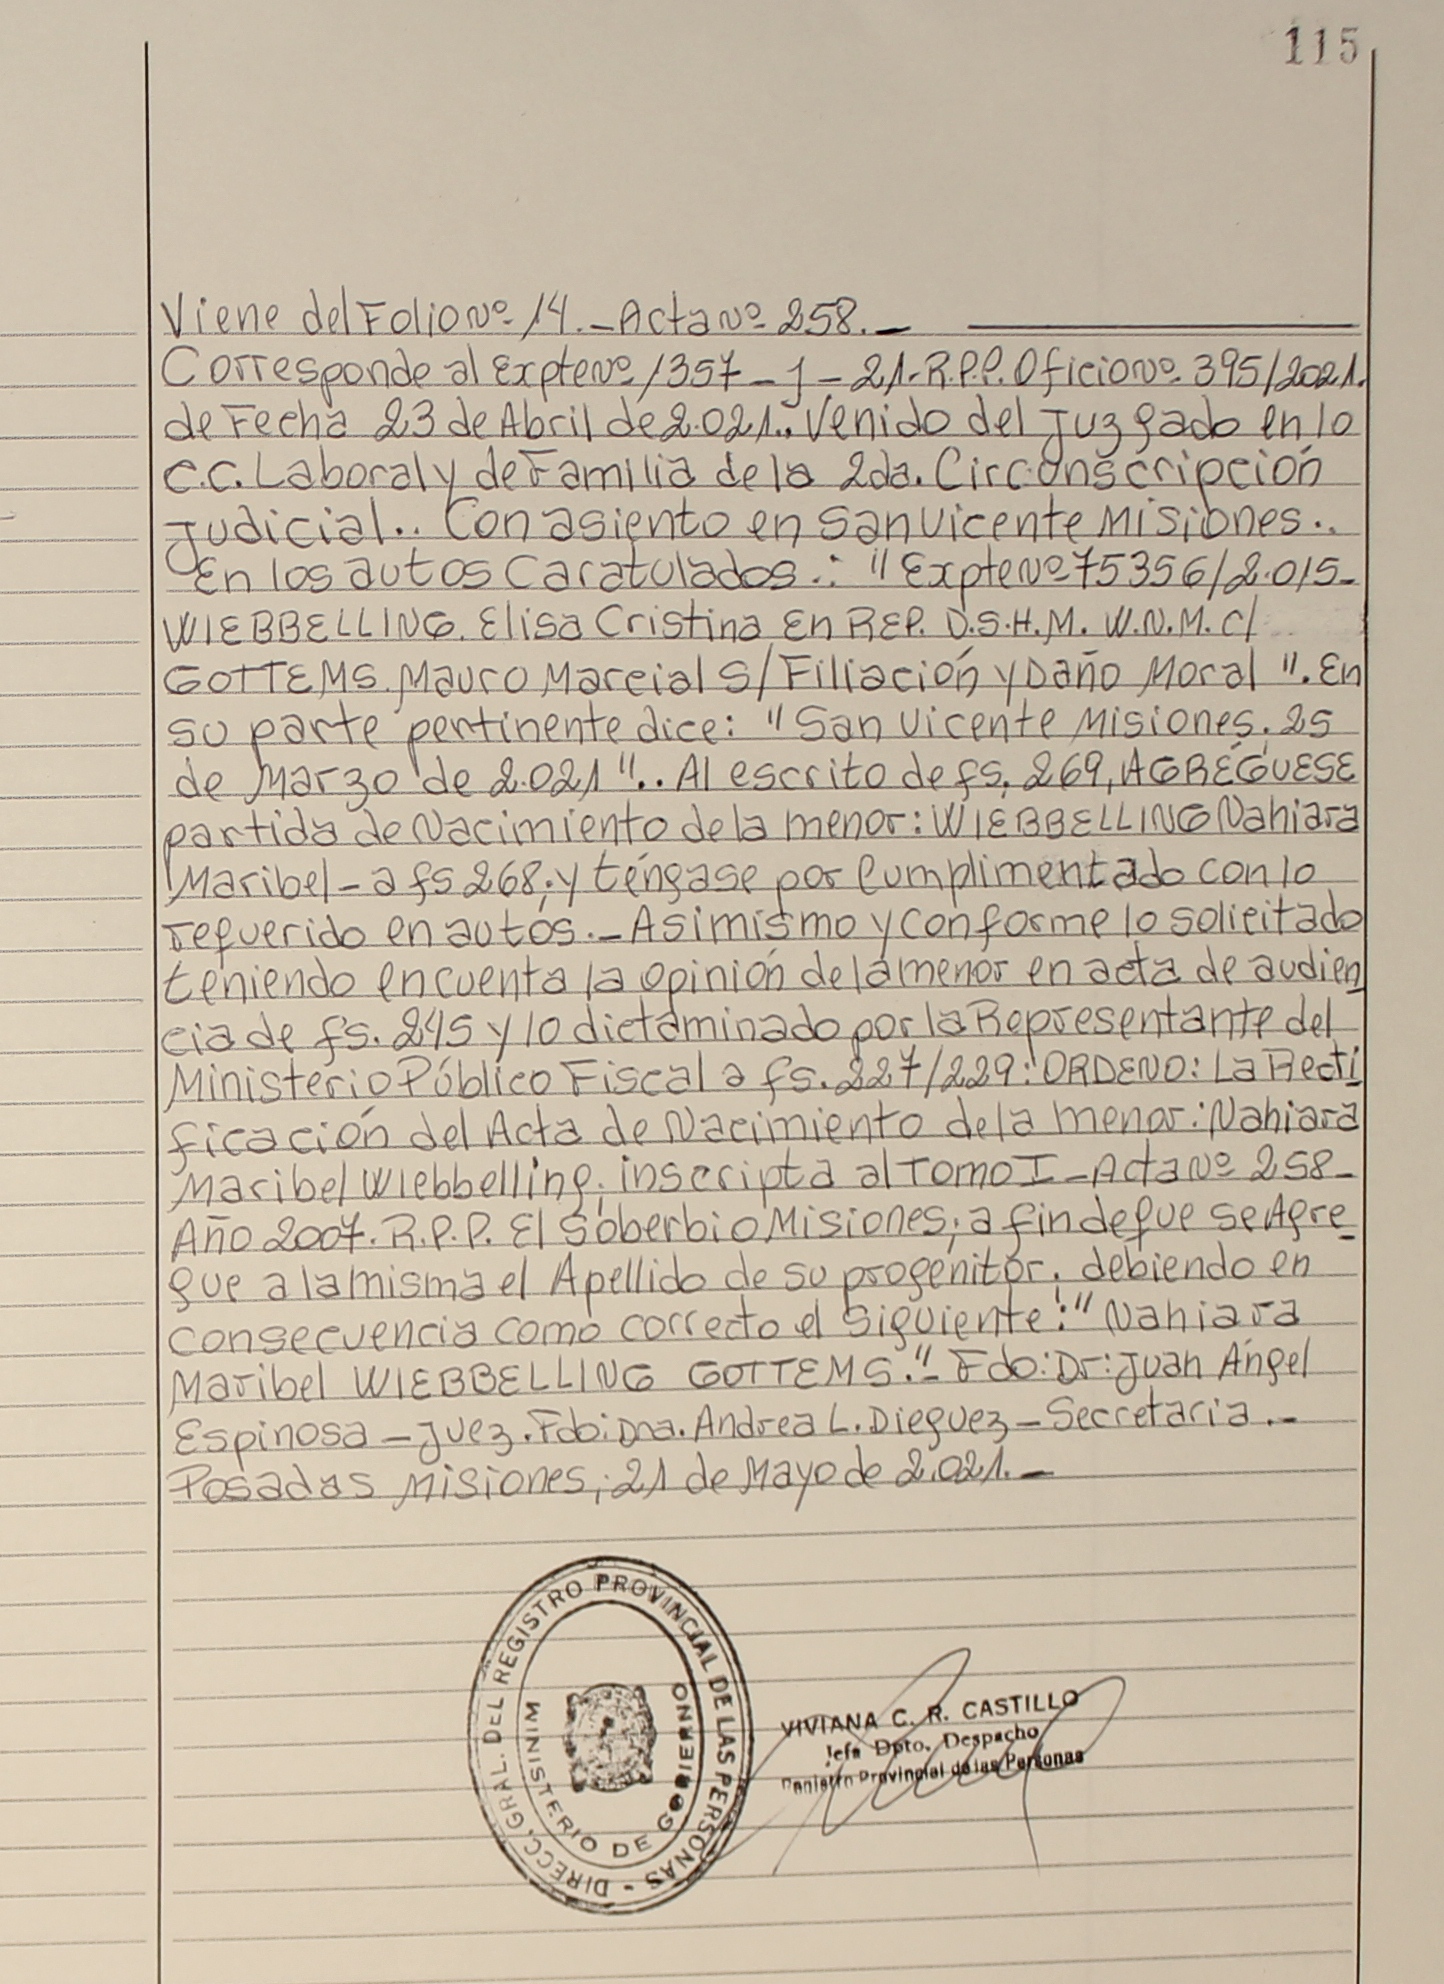 115
Viene del Folio Nº 14.- Acta Nº 258.-
Corresponde al Expte Nº 1357 - J - 21.- R.P.P. Oficio Nº. 395/2021.
de Fecha 23 de Abril de 2.021.. Venido del Juzgado en lo
C.C. Laboral y de Familia de la 2da. Circonscripción
Judicial.. Con asiento en San Vicente Misiones..
En los autos Caratulados.: "Expte Nº 75356/2.015-
WIEBBELLING. Elisa Cristina En REP. D.S.H.M. W.N.M. C/
GOTTEMS. Mauro Marcial S/Filiación y Daño Moral". En
su parte pertinente dice: "San Vicente Misiones. 25
de Marzo de 2.021".. Al escrito de fs. 269, AGRÉGUESE
partida de Nacimiento de la menor: WIEBBELLING Nahiara
Maribel - a fs 268; y téngase por Cumplimentado con lo
requerido en autos.- Asimismo y conforme lo solicitado
teniendo en cuenta la opinión de la menor en acta de audien
cia de fs. 245 y lo dictaminado por la Representante del
Ministerio Público Fiscal a fs. 227/229: ORDENO: La Recti
ficación del Acta de Nacimiento de la menor: Nahiara
Maribel Wiebbelling; inscripta al Tomo I - Acta Nº 258-
Año 2007. R.P.P. El Soberbio Misiones; a fin de que se Agre
gue a la misma el Apellido de su progenitor. debiendo en
consecuencia como correcto el siguiente: "Nahiara
Maribel WIEBBELLING GOTTEMS."- Fdo: Dr: Juan Ángel
Espinosa - Juez. Fdo: Dra. Andrea L. Dieguez - Secretaria.-
Posadas Misiones; 21 de Mayo de 2.021.-
DIRECC. GRAL. DEL REGISTRO PROVINCIAL DE LAS PERSONAS -
MINISTERIO DE GOBIERNO
VIVIANA C. R. CASTILLO
Jefa Dpto. Despacho
Registro Provincial de las Personas